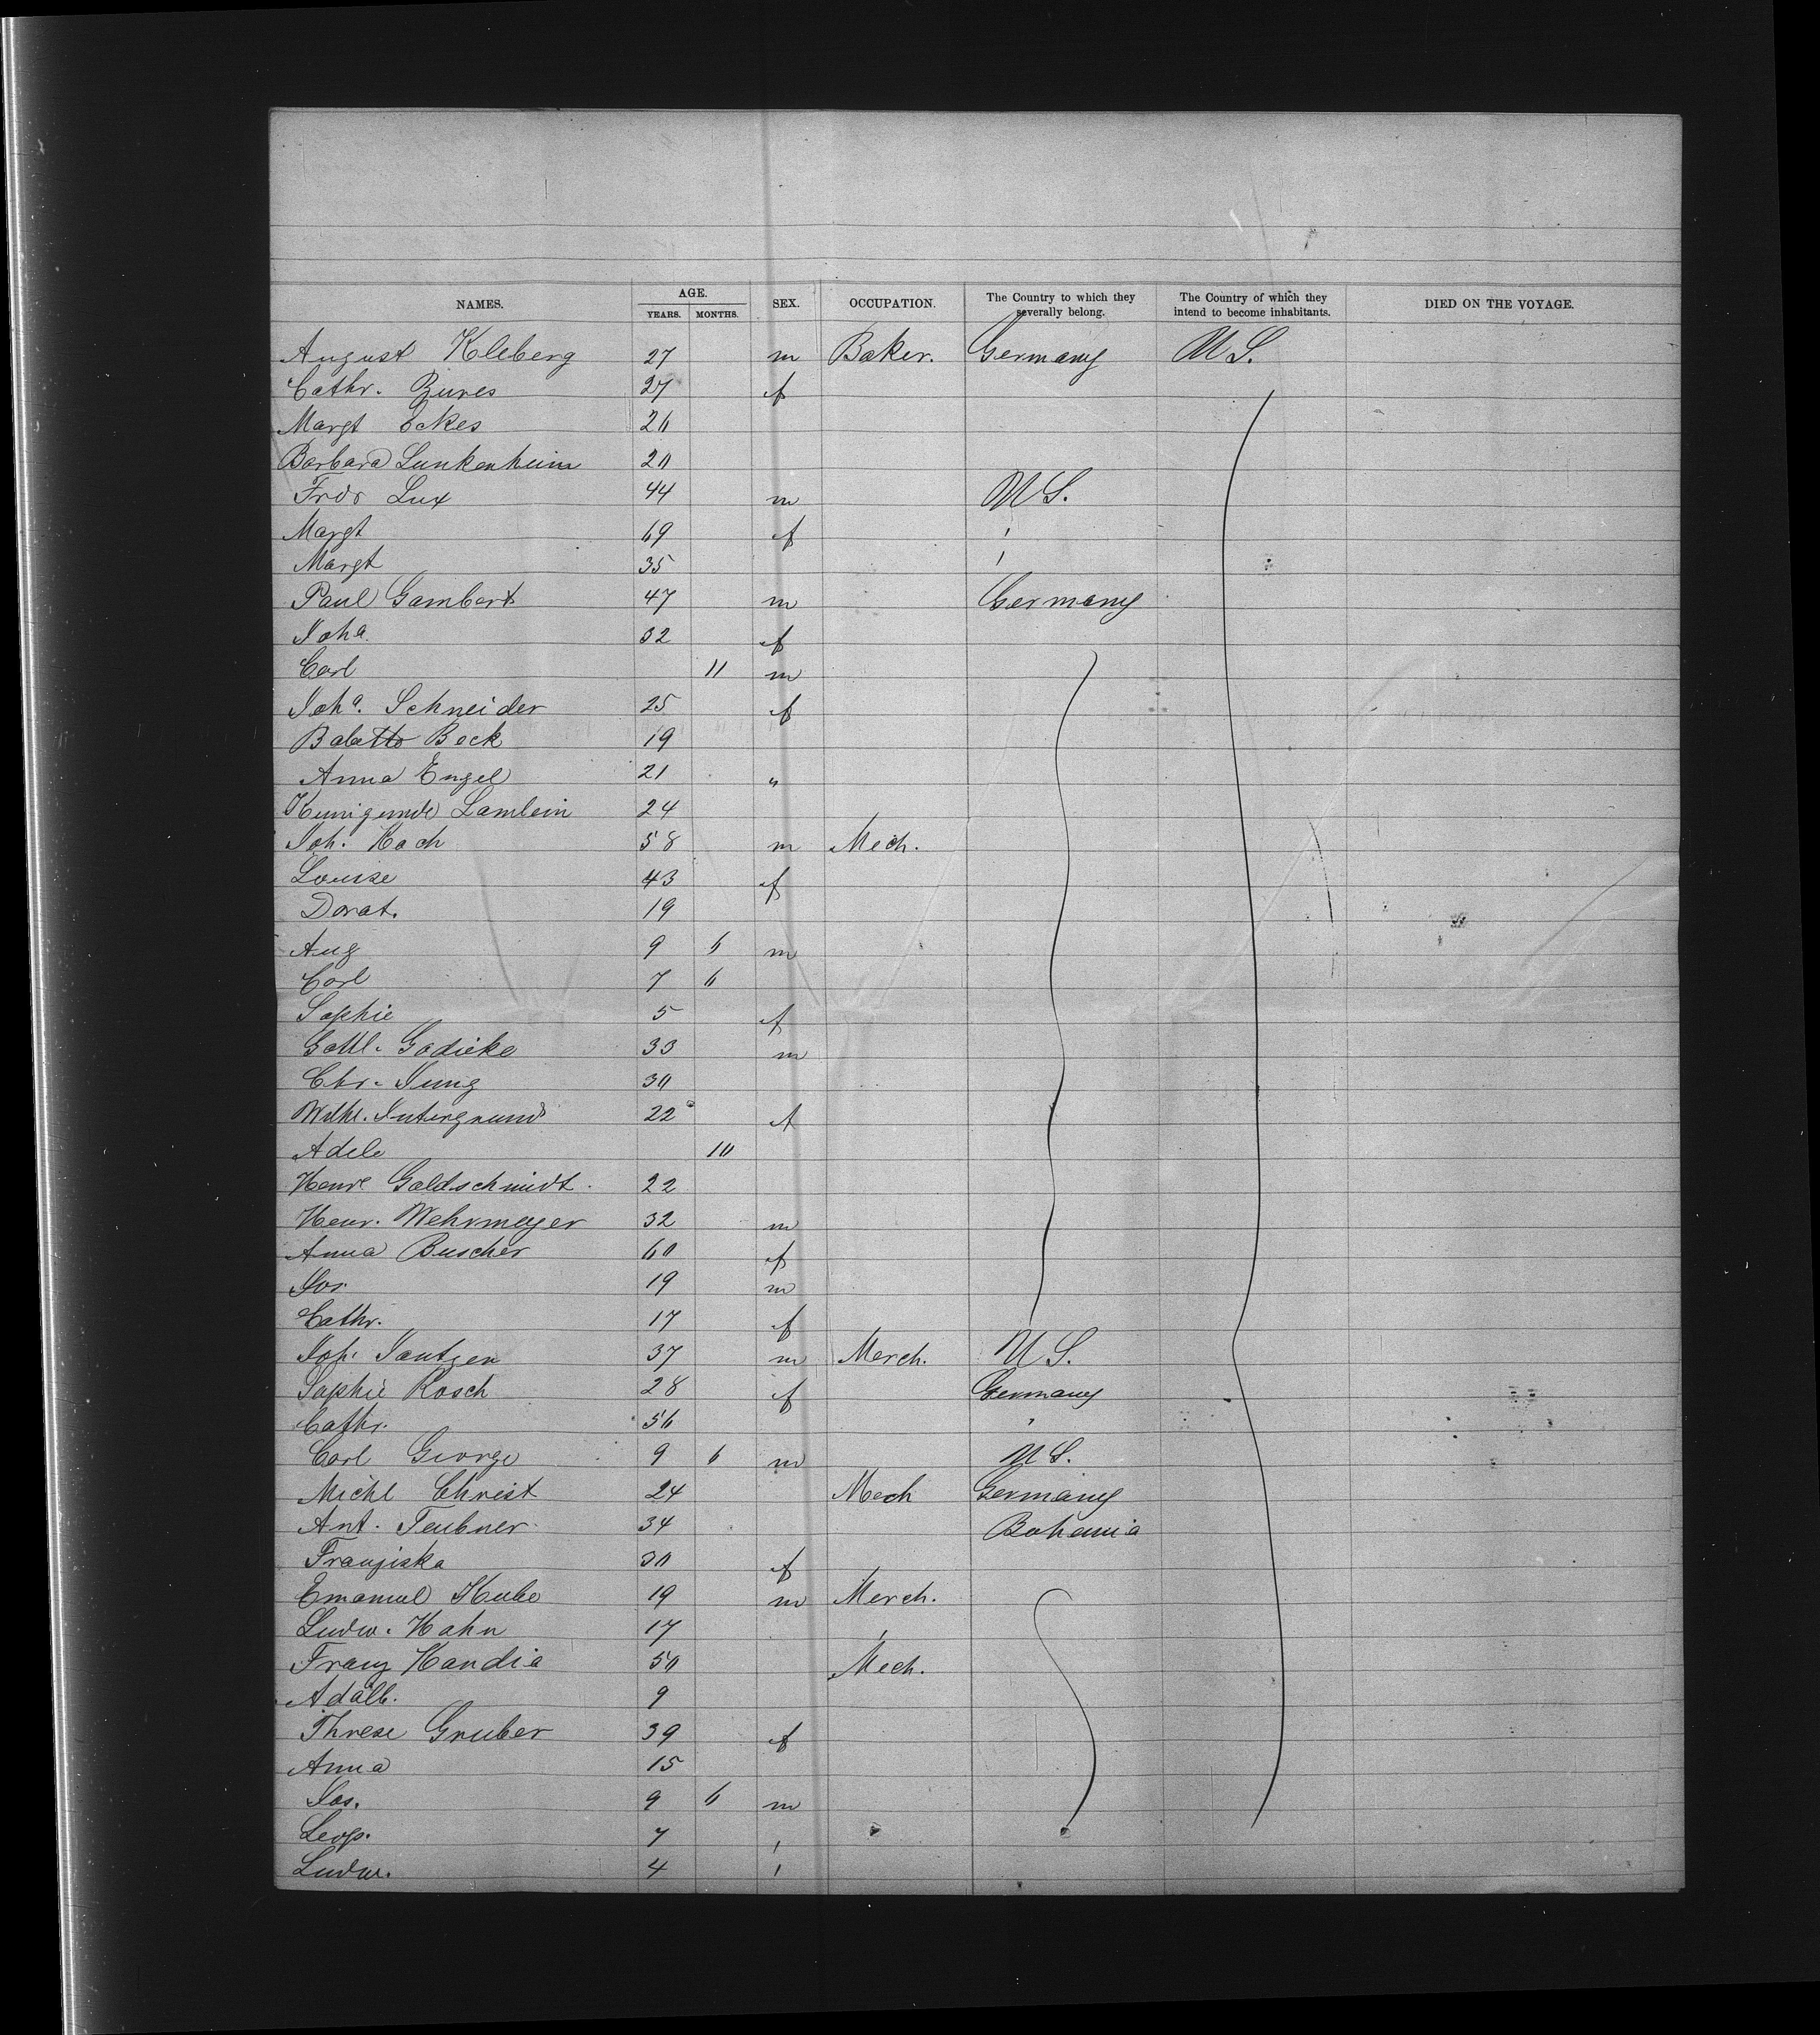 NAMES. AGE. YEARS. MONTHS. SEX. OCCUPATION. The Country to which they severally belong. The Country of which they intend to become inhabitants. DIED ON THE VOYAGE.
August Kleberg 27 m Baker. Germany U S.
Cathr. Zures 27 f
Margt Eckes 20
Barbara Lunkenheim 20
Frdr Lux 44 m U S.
Margt 69 f '
Margt 35 '
Paul Gambert 47 m Germany
Joha. 32 f
Carl 11 m
Joha. Schneider 25 f
Babette Bock 19
Anna Engel 21 "
Kunigunde Lamlein 24
Joh. Koch 58 m Mech.
Louise 43 f
Dorat. 19
Aug 9 6 m
Carl 7 6
Sophie 5 f
Gottl. Godicke 33 m
Chr. Jung 30
Wilhl. Intergrund 22 f
Adele 10
Henre Goldschmidt. 22
Henr. Wehrmeyer 32 m
Anna Buscher 60 f
Jos. 19 m
Cathr. 17 f
Joh. Jantzen 37 m Merch. U S.
Sophie Rosch 28 f Germany
Cathr. 56 "
Carl George 9 6 m U S.
Michl Christ 24 Mech Germany
Ant. Teubner 34 Bohemia
Franziska 30 f
Emanuel Kube 19 m Merch.
Ludw. Hahn 17 '
Franz Kandia 50 Mech.
Adalb. 9
Threse Gruber 39 f
Anna 15
Jos. 9 6 m
Leop. 7 '
Ludw. 4 '